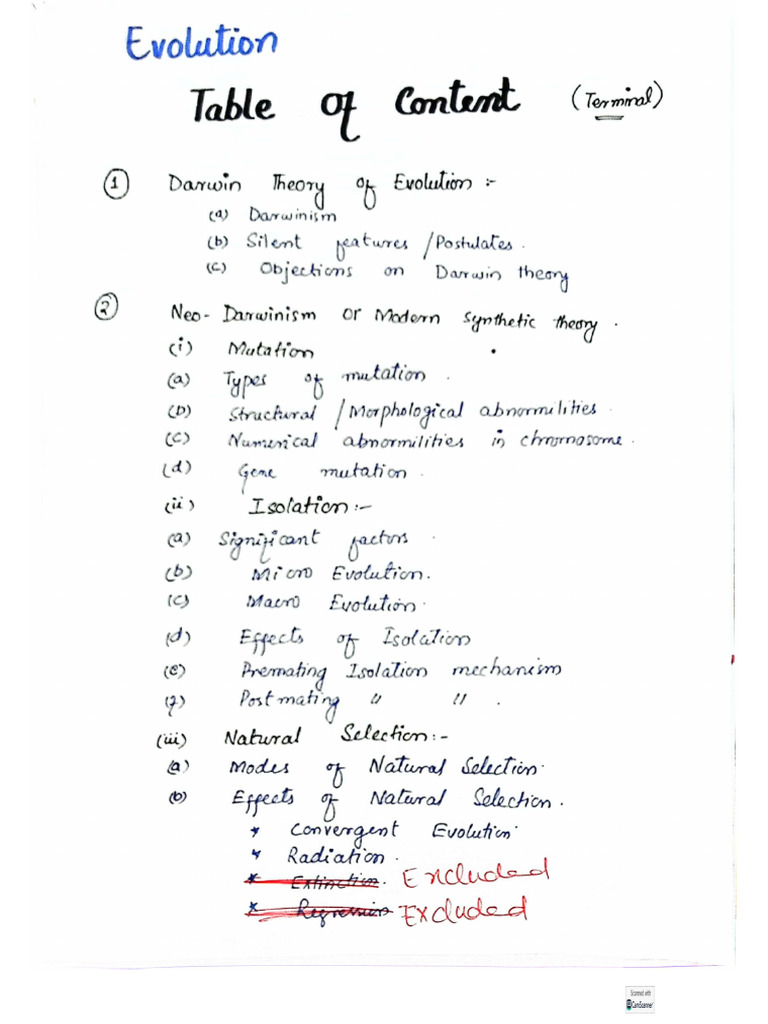 Evolution
Table of Content (Terminal)
① Darwin Theory of Evolution :-
(a) Darwinism
(b) Silent features / Postulates.
(c) Objections on Darwin theory
② Neo-Darwinism or Modern synthetic theory.
(i) Mutation
(a) Types of mutation.
(b) Structural / Morphological abnormilities.
(c) Numerical abnormilities in chromosome.
(d) Gene mutation.
(ii) Isolation:-
(a) Significant factors.
(b) Micro Evolution.
(c) Macro Evolution.
(d) Effects of Isolation
(e) Premating Isolation mechanism
(f) Postmating " " .
(iii) Natural Selection:-
(a) Modes of Natural Selection.
(b) Effects of Natural Selection.
* Convergent Evolution.
* Radiation.
* Extinction. Excluded
* Regression Excluded
Scanned with
CamScanner